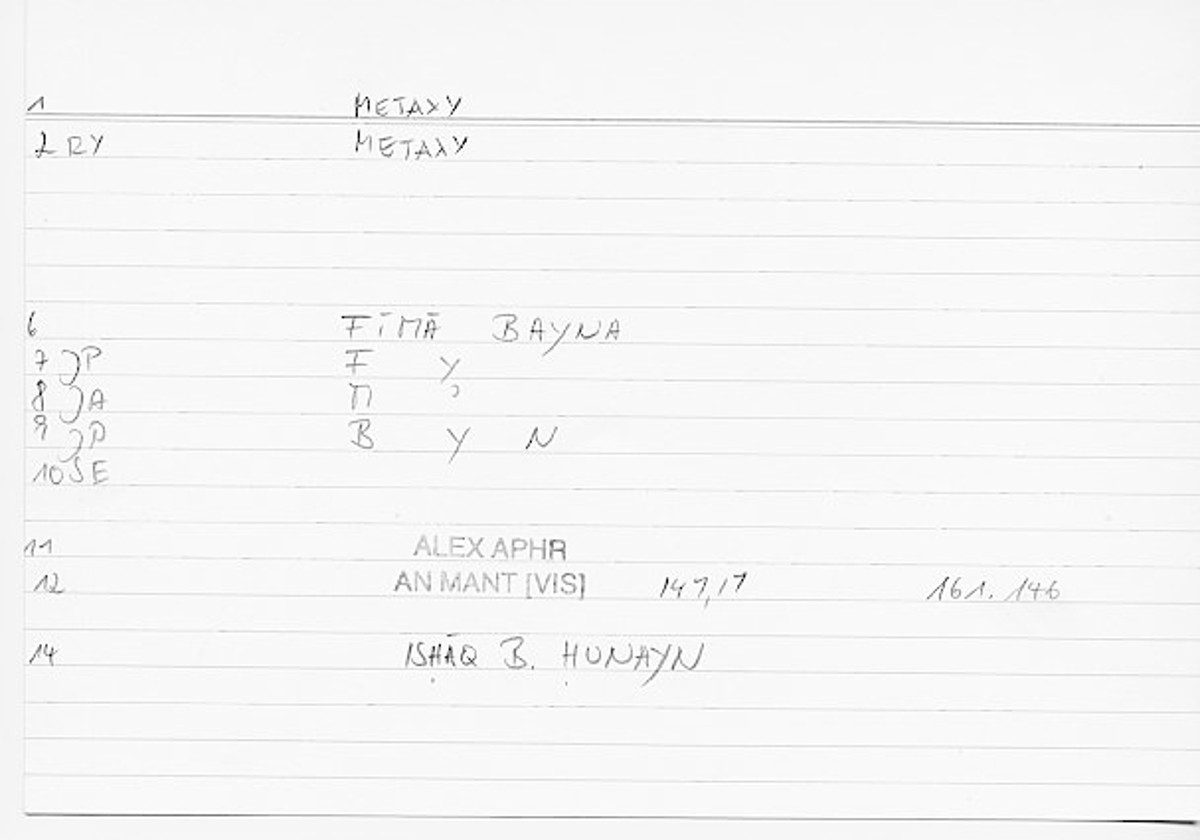 1 METAXY
2 RY METAXY
6 FĪMĀ BAYNA
7 JP F Y
8 JA M ʾ
9 JP B Y N
10 SE
11 ALEX APHR
12 AN MANT [VIS] 147,17 161. 146
14 ISḤĀQ B. ḤUNAYN